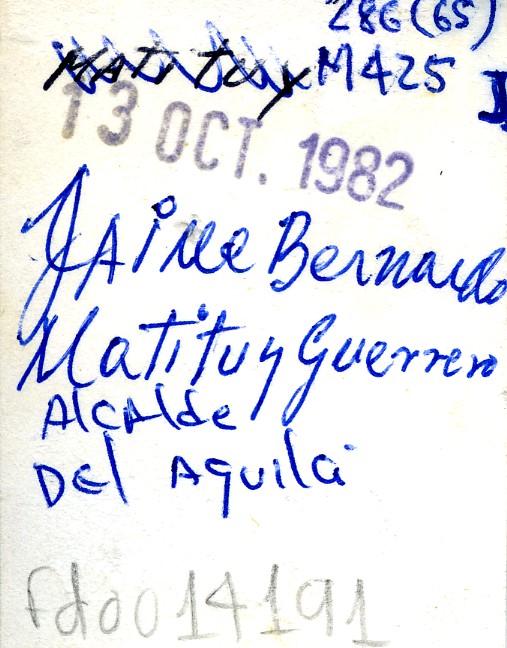 286(65)
Matituy M425
13 OCT. 1982
JAime Bernardo
Matituy Guerrero
AlcAlde
Del Aquila
fd0014191